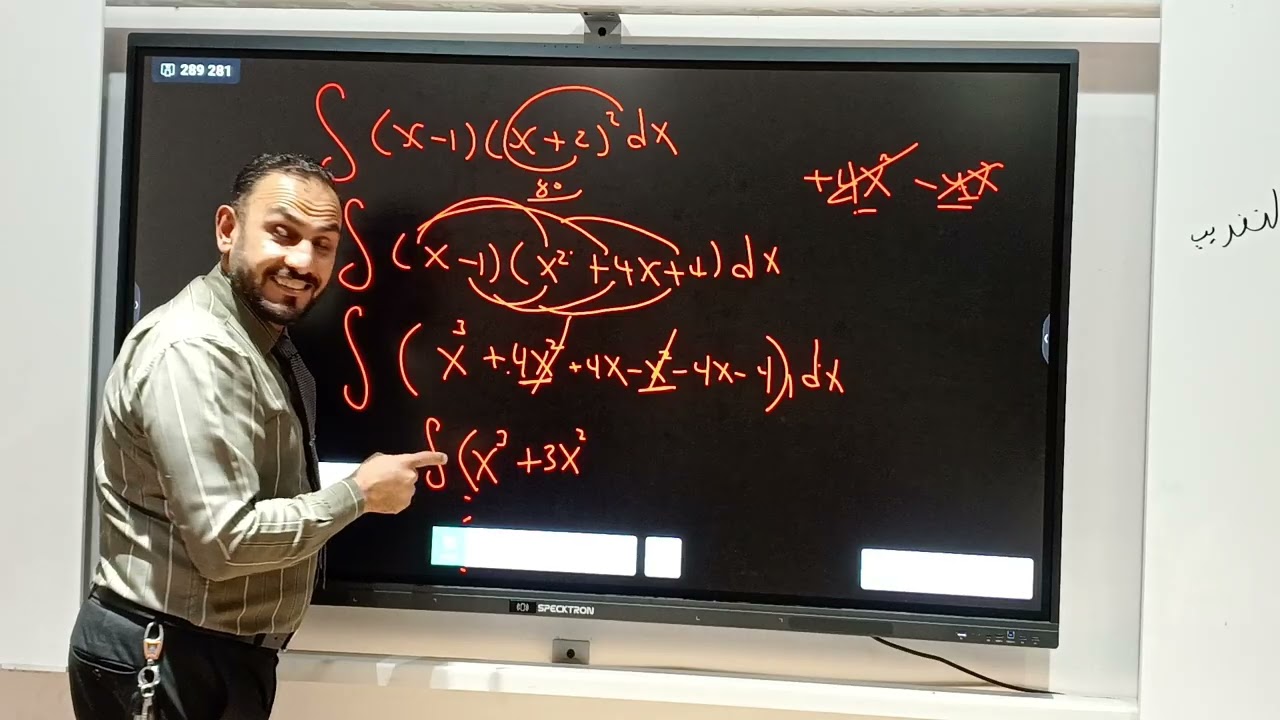 289 281
∫ (x-1)(x+2)² dx
+4x² -4x
∫ (x-1)(x²+4x+4) dx
∫ (x³+4x²+4x-x²-4x-4) dx
∫ (x³+3x²
SPECKTRON